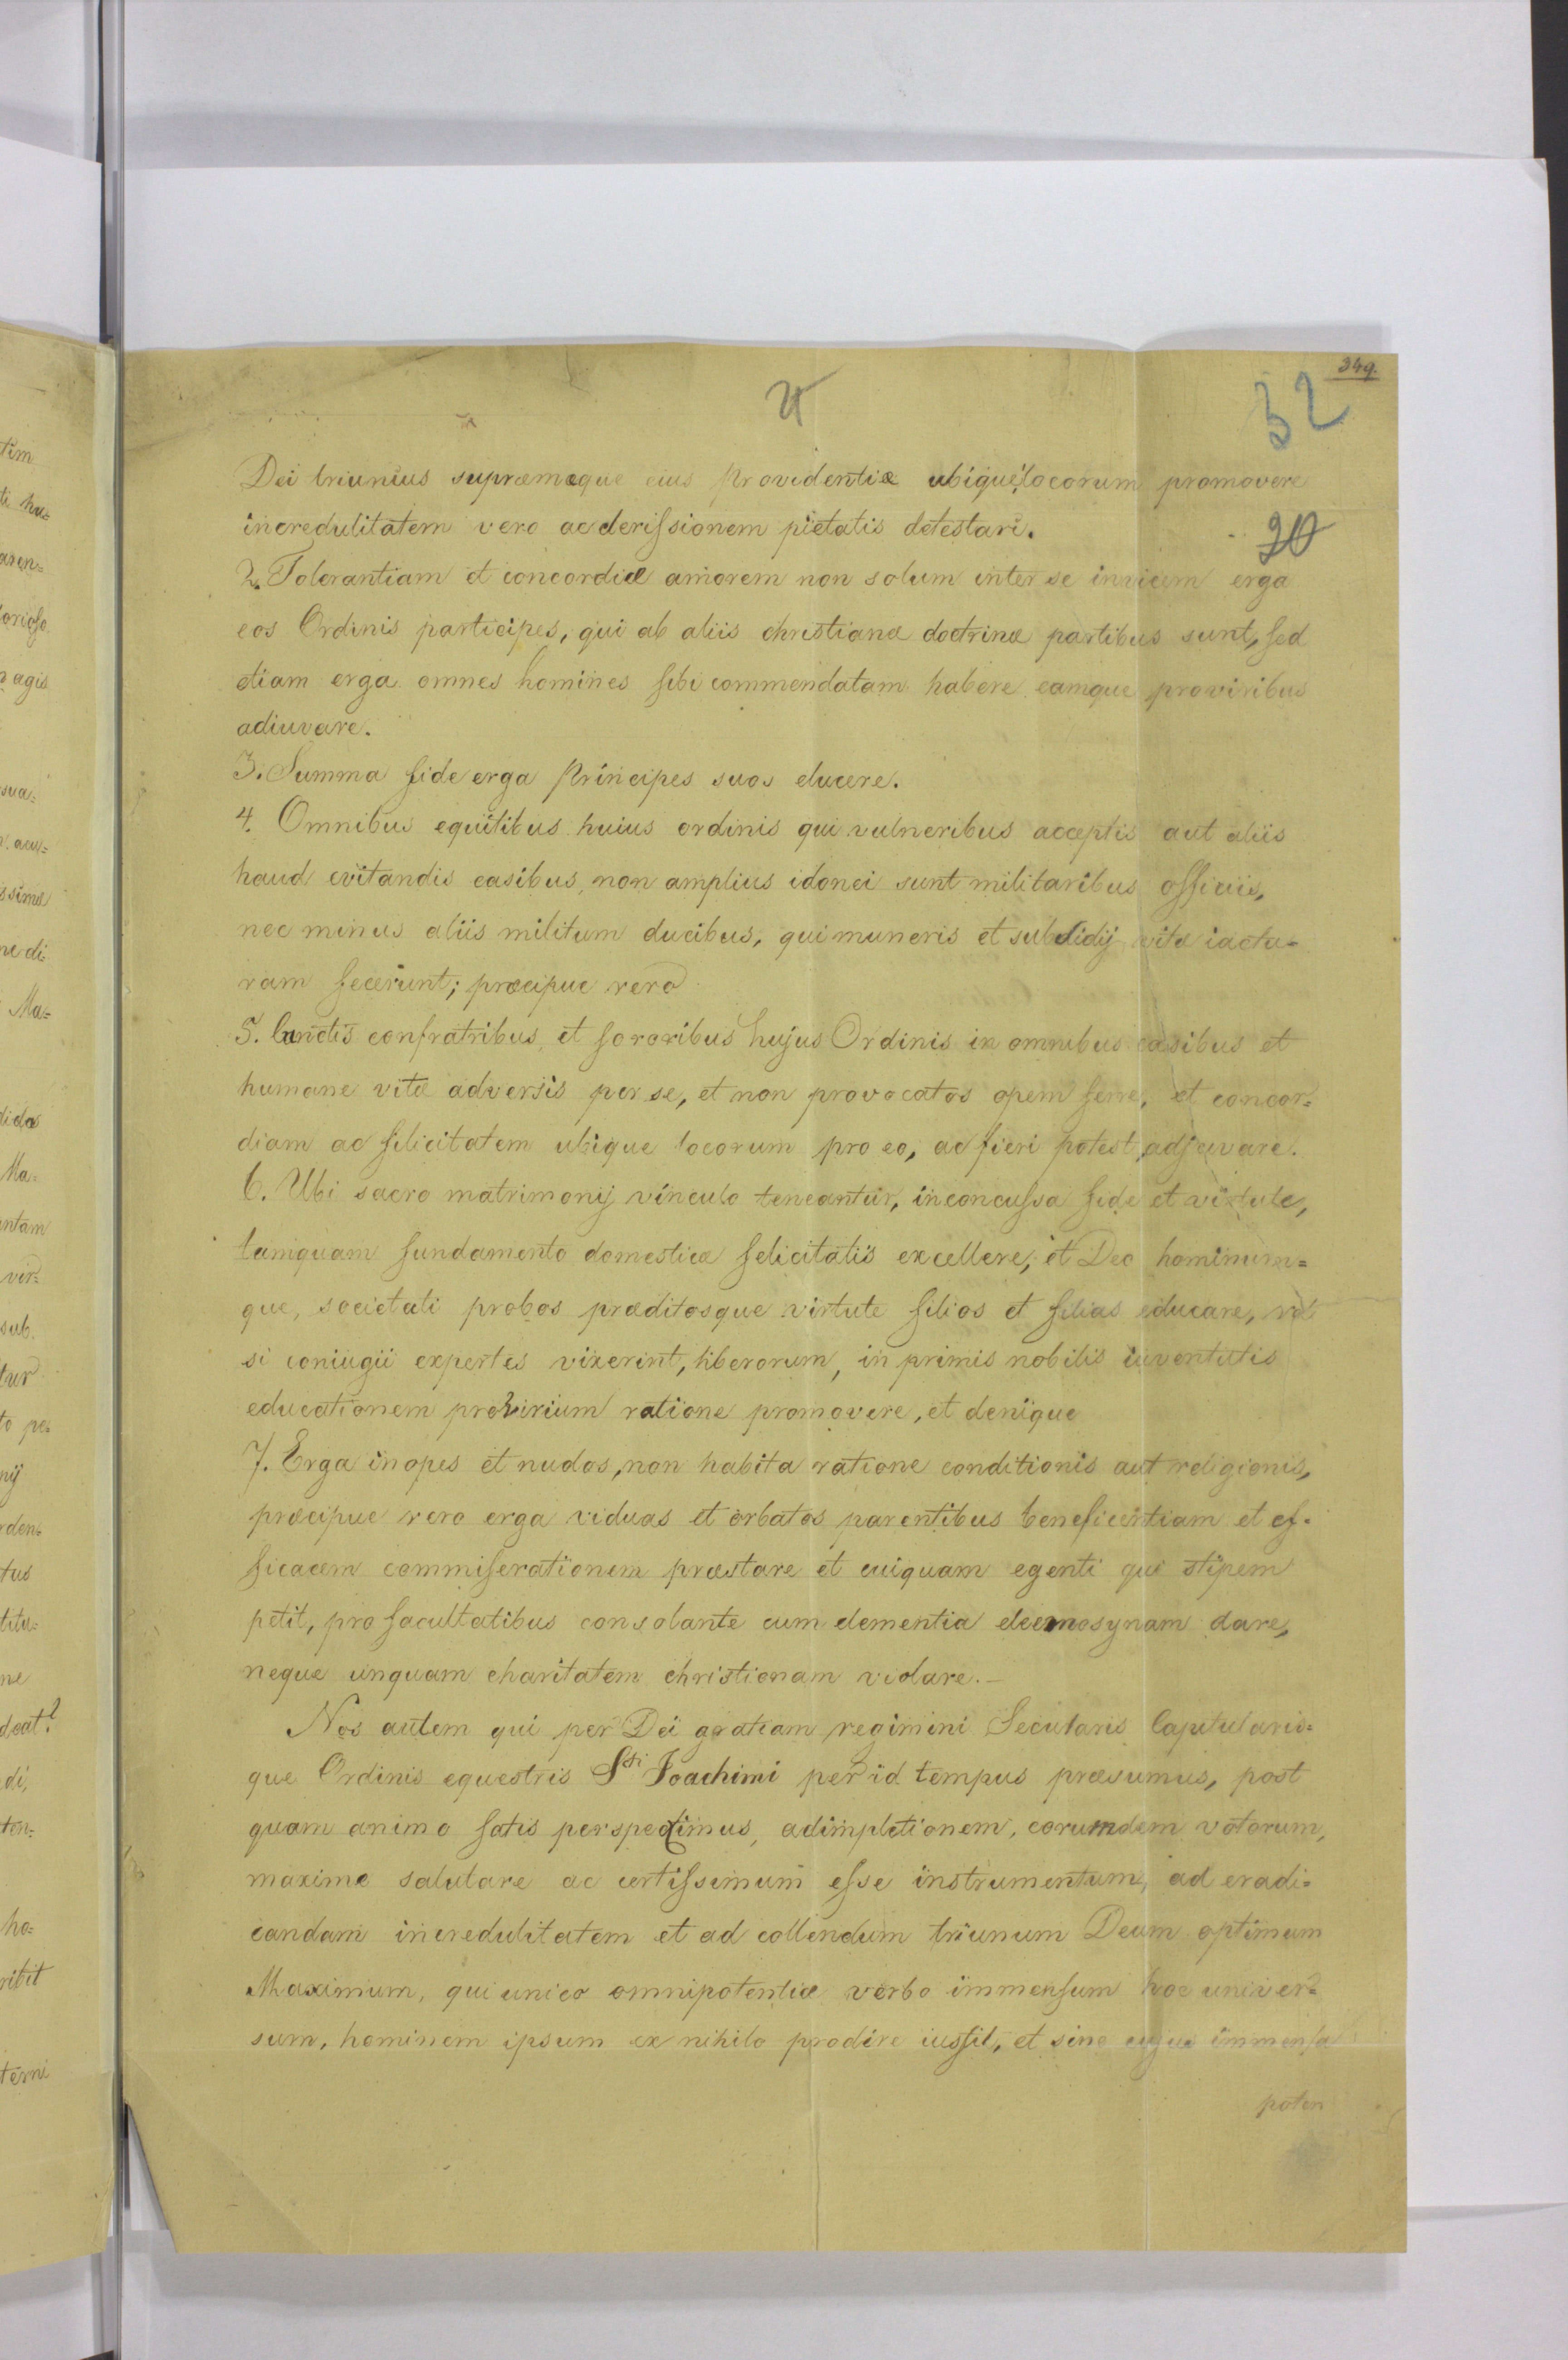 349.
32
Dei triunius supræmæque eius Providentiæ ubique locorum promovere
incredulitatem vero ac derissionem pietatis detestari.
20
2. Tolerantiam et concordiæ amorem non solum inter se invicem erga
eos Ordinis participes, qui ab aliis christianæ doctrinæ partibus sunt, sed
etiam erga omnes homines sibi commendatam habere eamque proviribus
adiuvare.
3. Summa fide erga Principes suos elucere.
4. Omnibus equitibus huius ordinis qui vulneribus acceptis aut aliis
haud evitandis casibus, non amplius idonei sunt militaribus officiis,
nec minus aliis militum ducibus, qui muneris et subsidij vitæ iactu=
ram fecerunt; præcipue vero
5. Cunctis confratribus et sororibus hujus Ordinis in omnibus casibus et
humane vitæ adversis per se, et non provocatos opem ferre, et concor=
diam ac filicitatem ubique locorum pro eo, ac fieri potest adjuvare.
6. Ubi sacro matrimonij vinculo teneantur, inconcussa fide et virtute,
tamquam fundamento domesticæ felicitatis excellere, et Deo hominum=
que, societati probos præditosque virtute filios et filias educare, vel
si coniugii expertes vixerint, liberorum, in primis nobilis iuventutis
educationem pro virium ratione promovere, et denique
7. Erga inopes et nudos, non habita ratione conditionis aut religionis,
præcipue vero erga viduas et orbatos parentibus beneficentiam et ef=
ficacem commiserationem præstare et cuiquam egenti qui stipem
petit, pro facultatibus consolante cum clementia eleemosynam dare,
neque unquam charitatem christianam violare.—
Nos autem qui per Dei gratiam regimini Secularis Capitularis=
que Ordinis equestris Sti Joachimi per id tempus præsumus, post
quam animo satis perspeximus, adimpletionem, eorumdem votorum,
maxime salutare ac certissimum esse instrumentum, ad eradi=
candam incredulitatem et ad collendum triunum Deum optimum
Maximum, qui unico omnipotentiæ verbo immensum hoc univer=
sum, hominem ipsum ex nihilo prodire iussit, et sine cujus immensa
poten